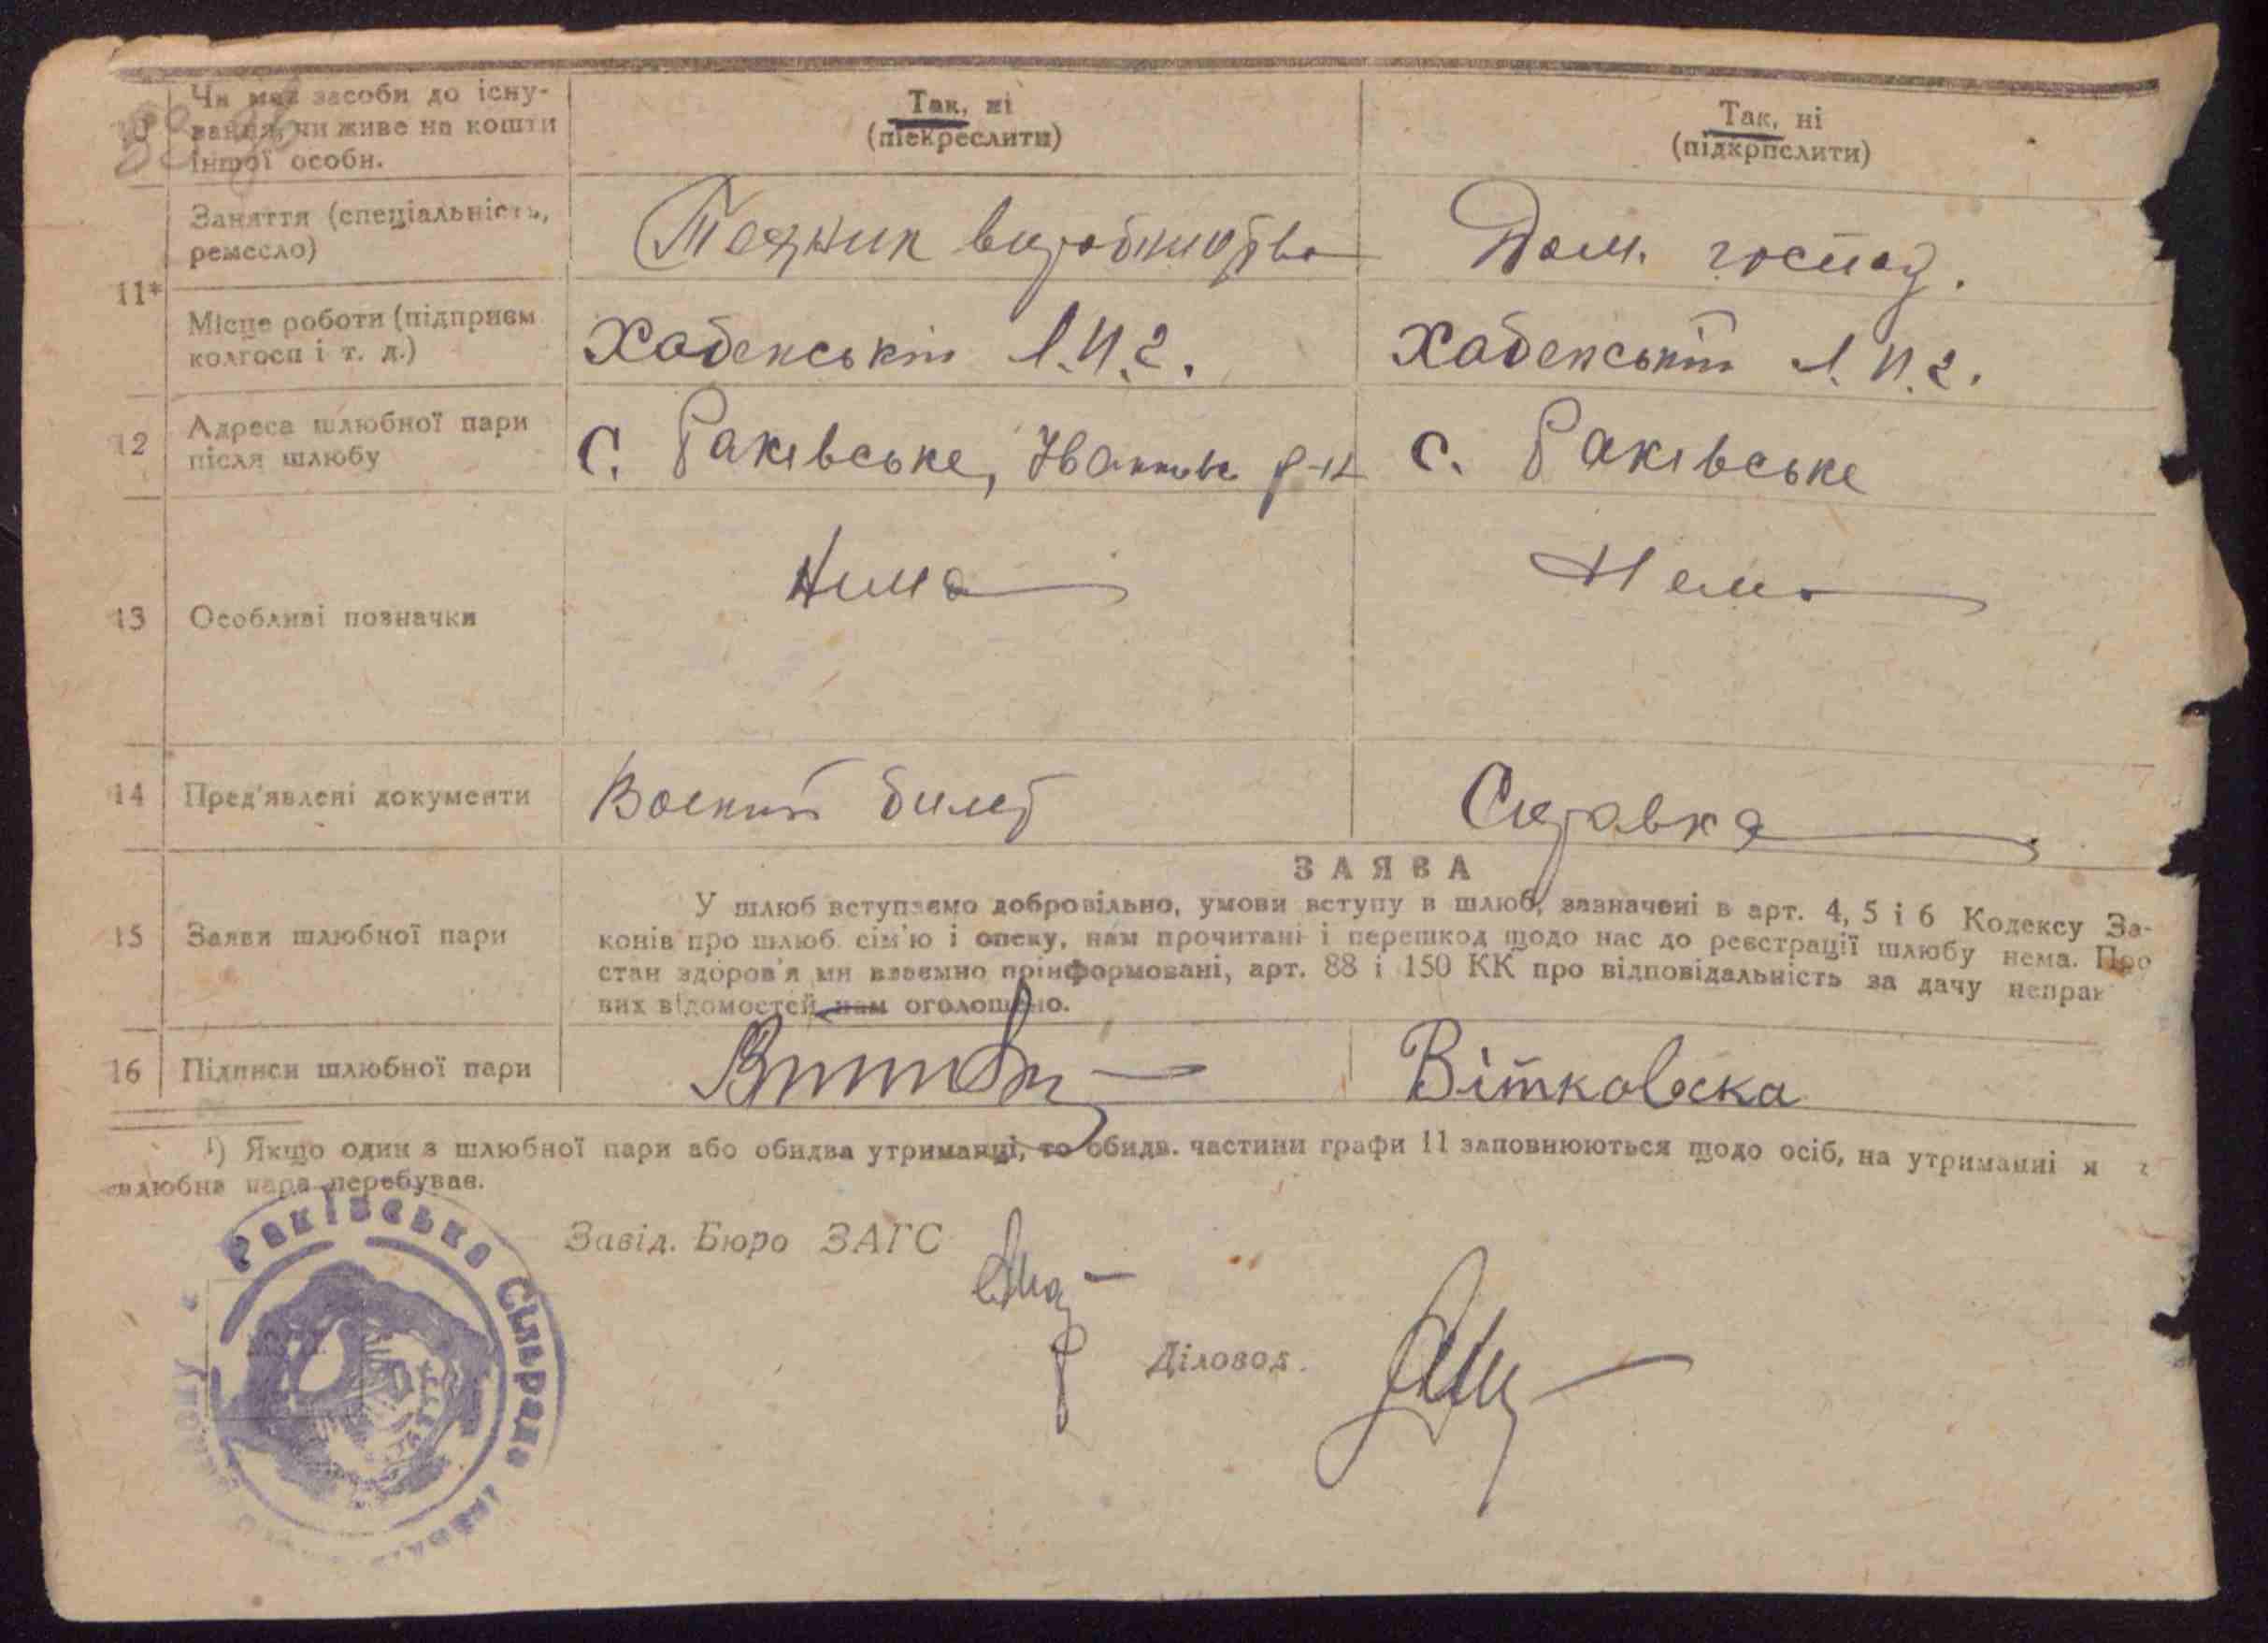 10 Чи має засоби до існу-
вання, чи живе на кошти
іншої особи.
Так, ні
(піекреслити)
Так, ні
(підкрпслити)
11*
Заняття (спеціальність,
ремесло)
Техник виробництва
Дом. господ.
Місце роботи (підприєм
колгосп і т. д.)
Хабенський Л.П.Г.
Хабенський Л.П.Г.
12 Адреса шлюбної пари
після шлюбу
с. Раківське, Іванків р-н
с. Раківське
13 Особливі позначки
Нима
Нема
14 Пред'явлені документи
Воений билет
Справка
15 Заяви шлюбної пари
ЗАЯВА
У шлюб вступаємо добровільно, умови вступу в шлюб, зазначені в арт. 4, 5 і 6 Кодексу За-
конів про шлюб сім'ю і опеку, нам прочитані і перешкод щодо нас до реєстрації шлюбу нема. Про
стан здоров'я ми взаємно прінформовані, арт. 88 і 150 КК про відповідальність за дачу неправ
вих відомостей нам оголошено.
16 Підписи шлюбної пари
Вітковска
¹) Якщо один з шлюбної пари або обидва утриманці, то обидв. частини графи 11 заповнюються щодо осіб, на утриманні я
шлюбна пара перебуває.
Завід. Бюро ЗАГС
Діловод.
Раківська Сільрада